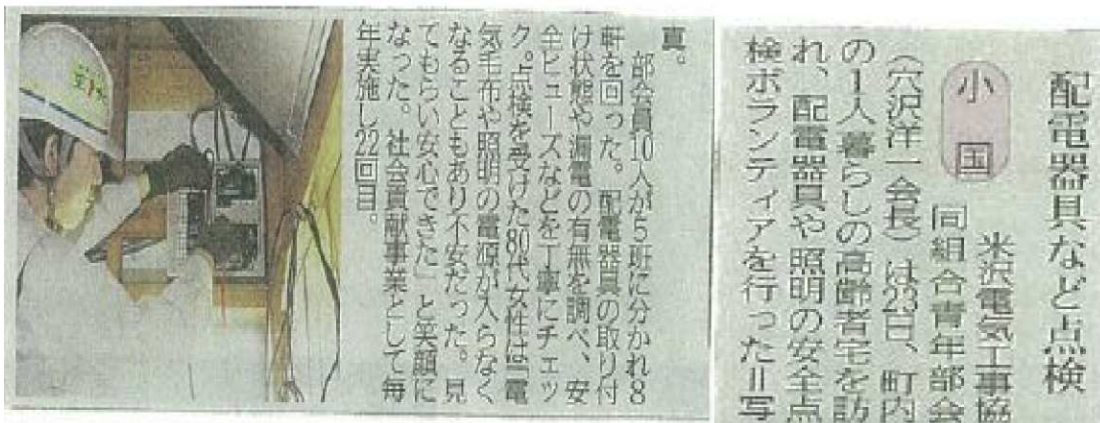 配電器具など点検
小国
米沢電気工事協
同組合青年部会
（穴沢洋一会長）は23日、町内
の1人暮らしの高齢者宅を訪
れ、配電器具や照明の安全点
検ボランティアを行った＝写
真。
部会員10人が5班に分かれ8
軒を回った。配電器具の取り付
け状態や漏電の有無を調べ、安
全ヒューズなどを丁寧にチェッ
ク。点検を受けた80代女性は「電
気毛布や照明の電源が入らなく
なることもあり不安だった。見
てもらい安心できた」と笑顔に
なった。社会貢献事業として毎
年実施し22回目。